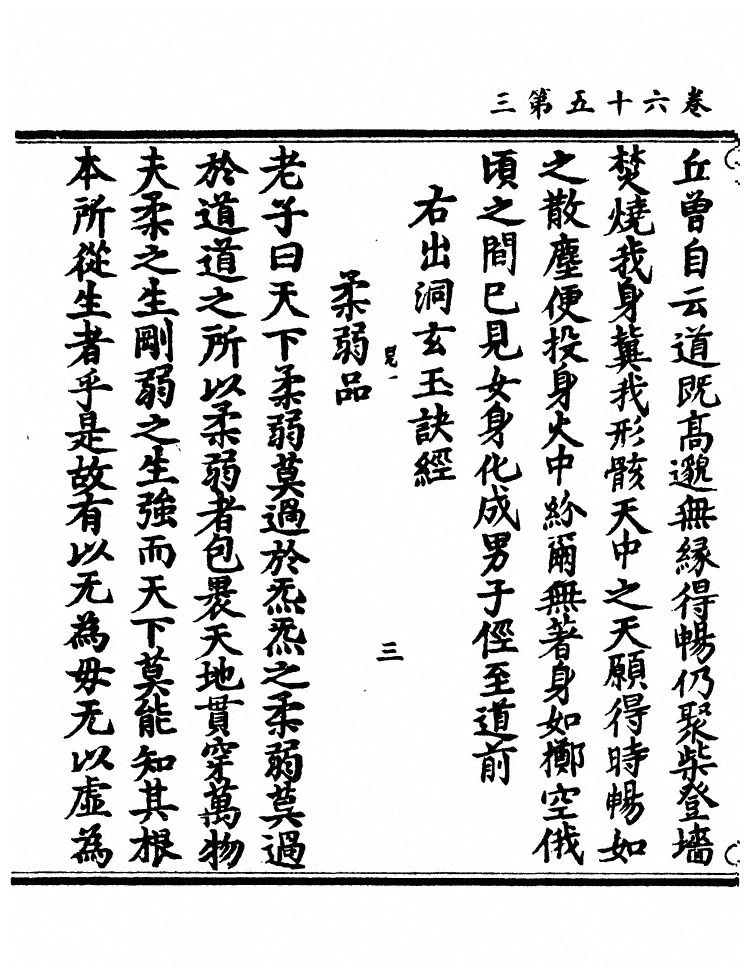 卷六十五第三
丘曾自云道既高邈無緣得暢仍聚柴登墻
焚燒我身冀我形骸天中之天願得時暢如
之散塵便投身火中紛爾無著身如擲空俄
頃之間已見女身化成男子俓至道前
右出洞玄玉訣經
三
柔弱品
老子曰天下柔弱莫過於炁炁之柔弱莫過
於道道之所以柔弱者包褁天地貫穿萬物
夫柔之生剛弱之生強而天下莫能知其根
本所從生者乎是故有以无為毋无以虛為